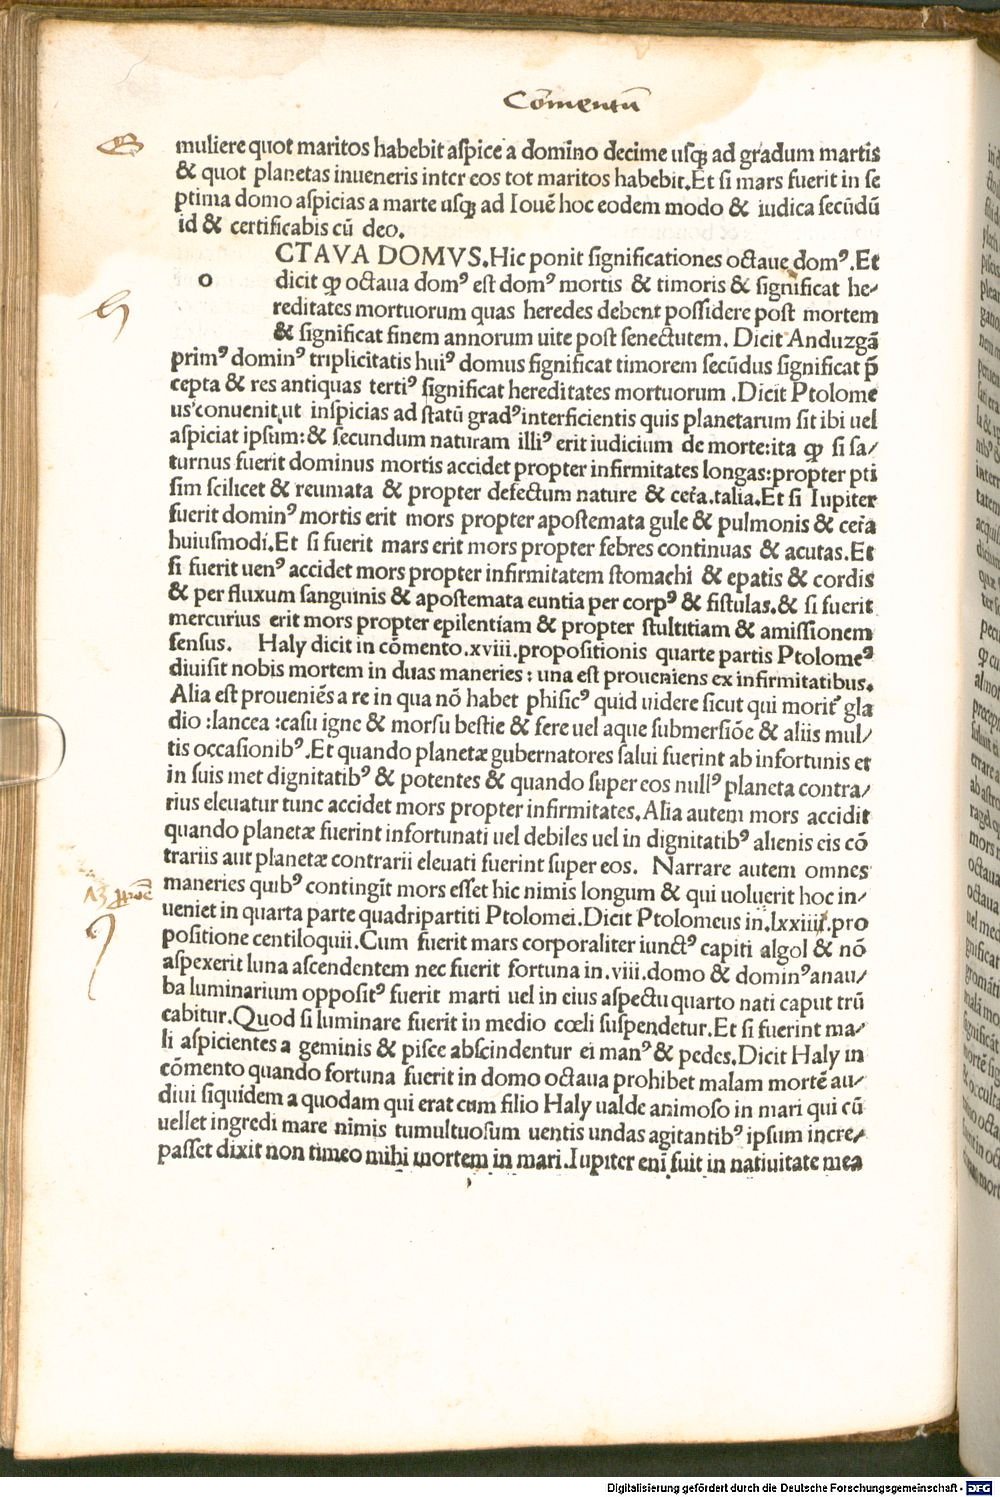 Cõmentũ
muliere quot maritos habebit aſpice a domino decime uſqꝫ ad gradum martis
& quot planetas inueneris inter eos tot maritos habebit.Et ſi mars fuerit in ſe
ptima domo aſpicias a marte uſqꝫ ad Iouẽ hoc eodem modo & iudica ſecũdũ
id & certificabis cũ deo.
CTAVA DOMVS.Hic ponit ſignificationes octaue domꝰ.Et
o dicit ꝙ octaua domꝰ eſt domꝰ mortis & timoris & ſignificat he/
reditates mortuorum quas heredes debent poſſidere poſt mortem
& ſignificat finem annorum uite poſt ſenectutem. Dicit Anduzgã
primꝰ dominꝰ triplicitatis huiꝰ domus ſignificat timorem ſecũdus ſignificat p̃
cepta & res antiquas tertiꝰ ſignificat hereditates mortuorum .Dicit Ptolome
us conuenit ut inſpicias ad ſtatũ gradꝰ interficientis quis planetarum ſit ibi uel
aſpiciat ipſum:& ſecundum naturam illiꝰ erit iudicium de morte:ita ꝙ ſi ſa/
turnus fuerit dominus mortis accidet propter infirmitates longas:propter pti
ſim ſcilicet & reumata & propter defectum nature & cet̃a.talia.Et ſi Iupiter
fuerit dominꝰ mortis erit mors propter apoſtemata gule & pulmonis & cet̃a
huiuſmodi.Et ſi fuerit mars erit mors propter febres continuas & acutas.Et
ſi fuerit uenꝰ accidet mors propter infirmitatem ſtomachi & epatis & cordis
& per fluxum ſanguinis & apoſtemata euntia per corpꝰ & fiſtulas.& ſi fuerit
mercurius erit mors propter epilentiam & propter ſtultitiam & amiſſionem
ſenſus. Haly dicit in cõmento.xviii.propoſitionis quarte partis Ptolomeꝰ
diuiſit nobis mortem in duas maneries : una eſt proueniens ex infirmitatibus.
Alia eſt proueniẽs a re in qua nõ habet phiſicꝰ quid uidere ſicut qui morit᷑ gla
dio :lancea :caſu igne & morſu beſtie & fere uel aque ſubmerſiõe & aliis mul/
tis occaſionibꝰ.Et quando planetæ gubernatores ſalui fuerint ab infortunis et
in ſuis met dignitatibꝰ & potentes & quando ſuper eos nullꝰ planeta contra/
rius eleuatur tunc accidet mors propter infirmitates.Alia autem mors accidit
quando planetæ fuerint infortunati uel debiles uel in dignitatibꝰ alienis eis cõ
trariis aut planetæ contrarii eleuati fuerint ſuper eos. Narrare autem omnes
maneries quibꝰ contingĩt mors eſſet hic nimis longum & qui uoluerit hoc in/
ueniet in quarta parte quadripartiti Ptolomei.Dicit Ptolomeus in.lxxiiii.pro
poſitione centiloquii.Cum fuerit mars corporaliter iunctꝰ capiti algol & nõ
aſpexerit luna aſcendentem nec fuerit fortuna in.viii.domo & dominꝰ anau/
ba luminarium oppoſitꝰ fuerit marti uel in eius aſpectu quarto nati caput trũ
cabitur.Quod ſi luminare fuerit in medio cœli ſuſpendetur.Et ſi fuerint ma/
li aſpicientes a geminis & piſce abſcindentur ei manꝰ & pedes.Dicit Haly in
cõmento quando fortuna fuerit in domo octaua prohibet malam mortẽ au/
diui ſiquidem a quodam qui erat cum filio Haly ualde animoſo in mari qui cũ
uellet ingredi mare nimis tumultuoſum uentis undas agitantibꝰ ipſum incre/
paſſet dixit non timeo mihi mortem in mari.Iupiter enĩ fuit in natiuitate mea
Digitalisierung gefördert durch die Deutsche Forschungsgemeinschaft - DFG